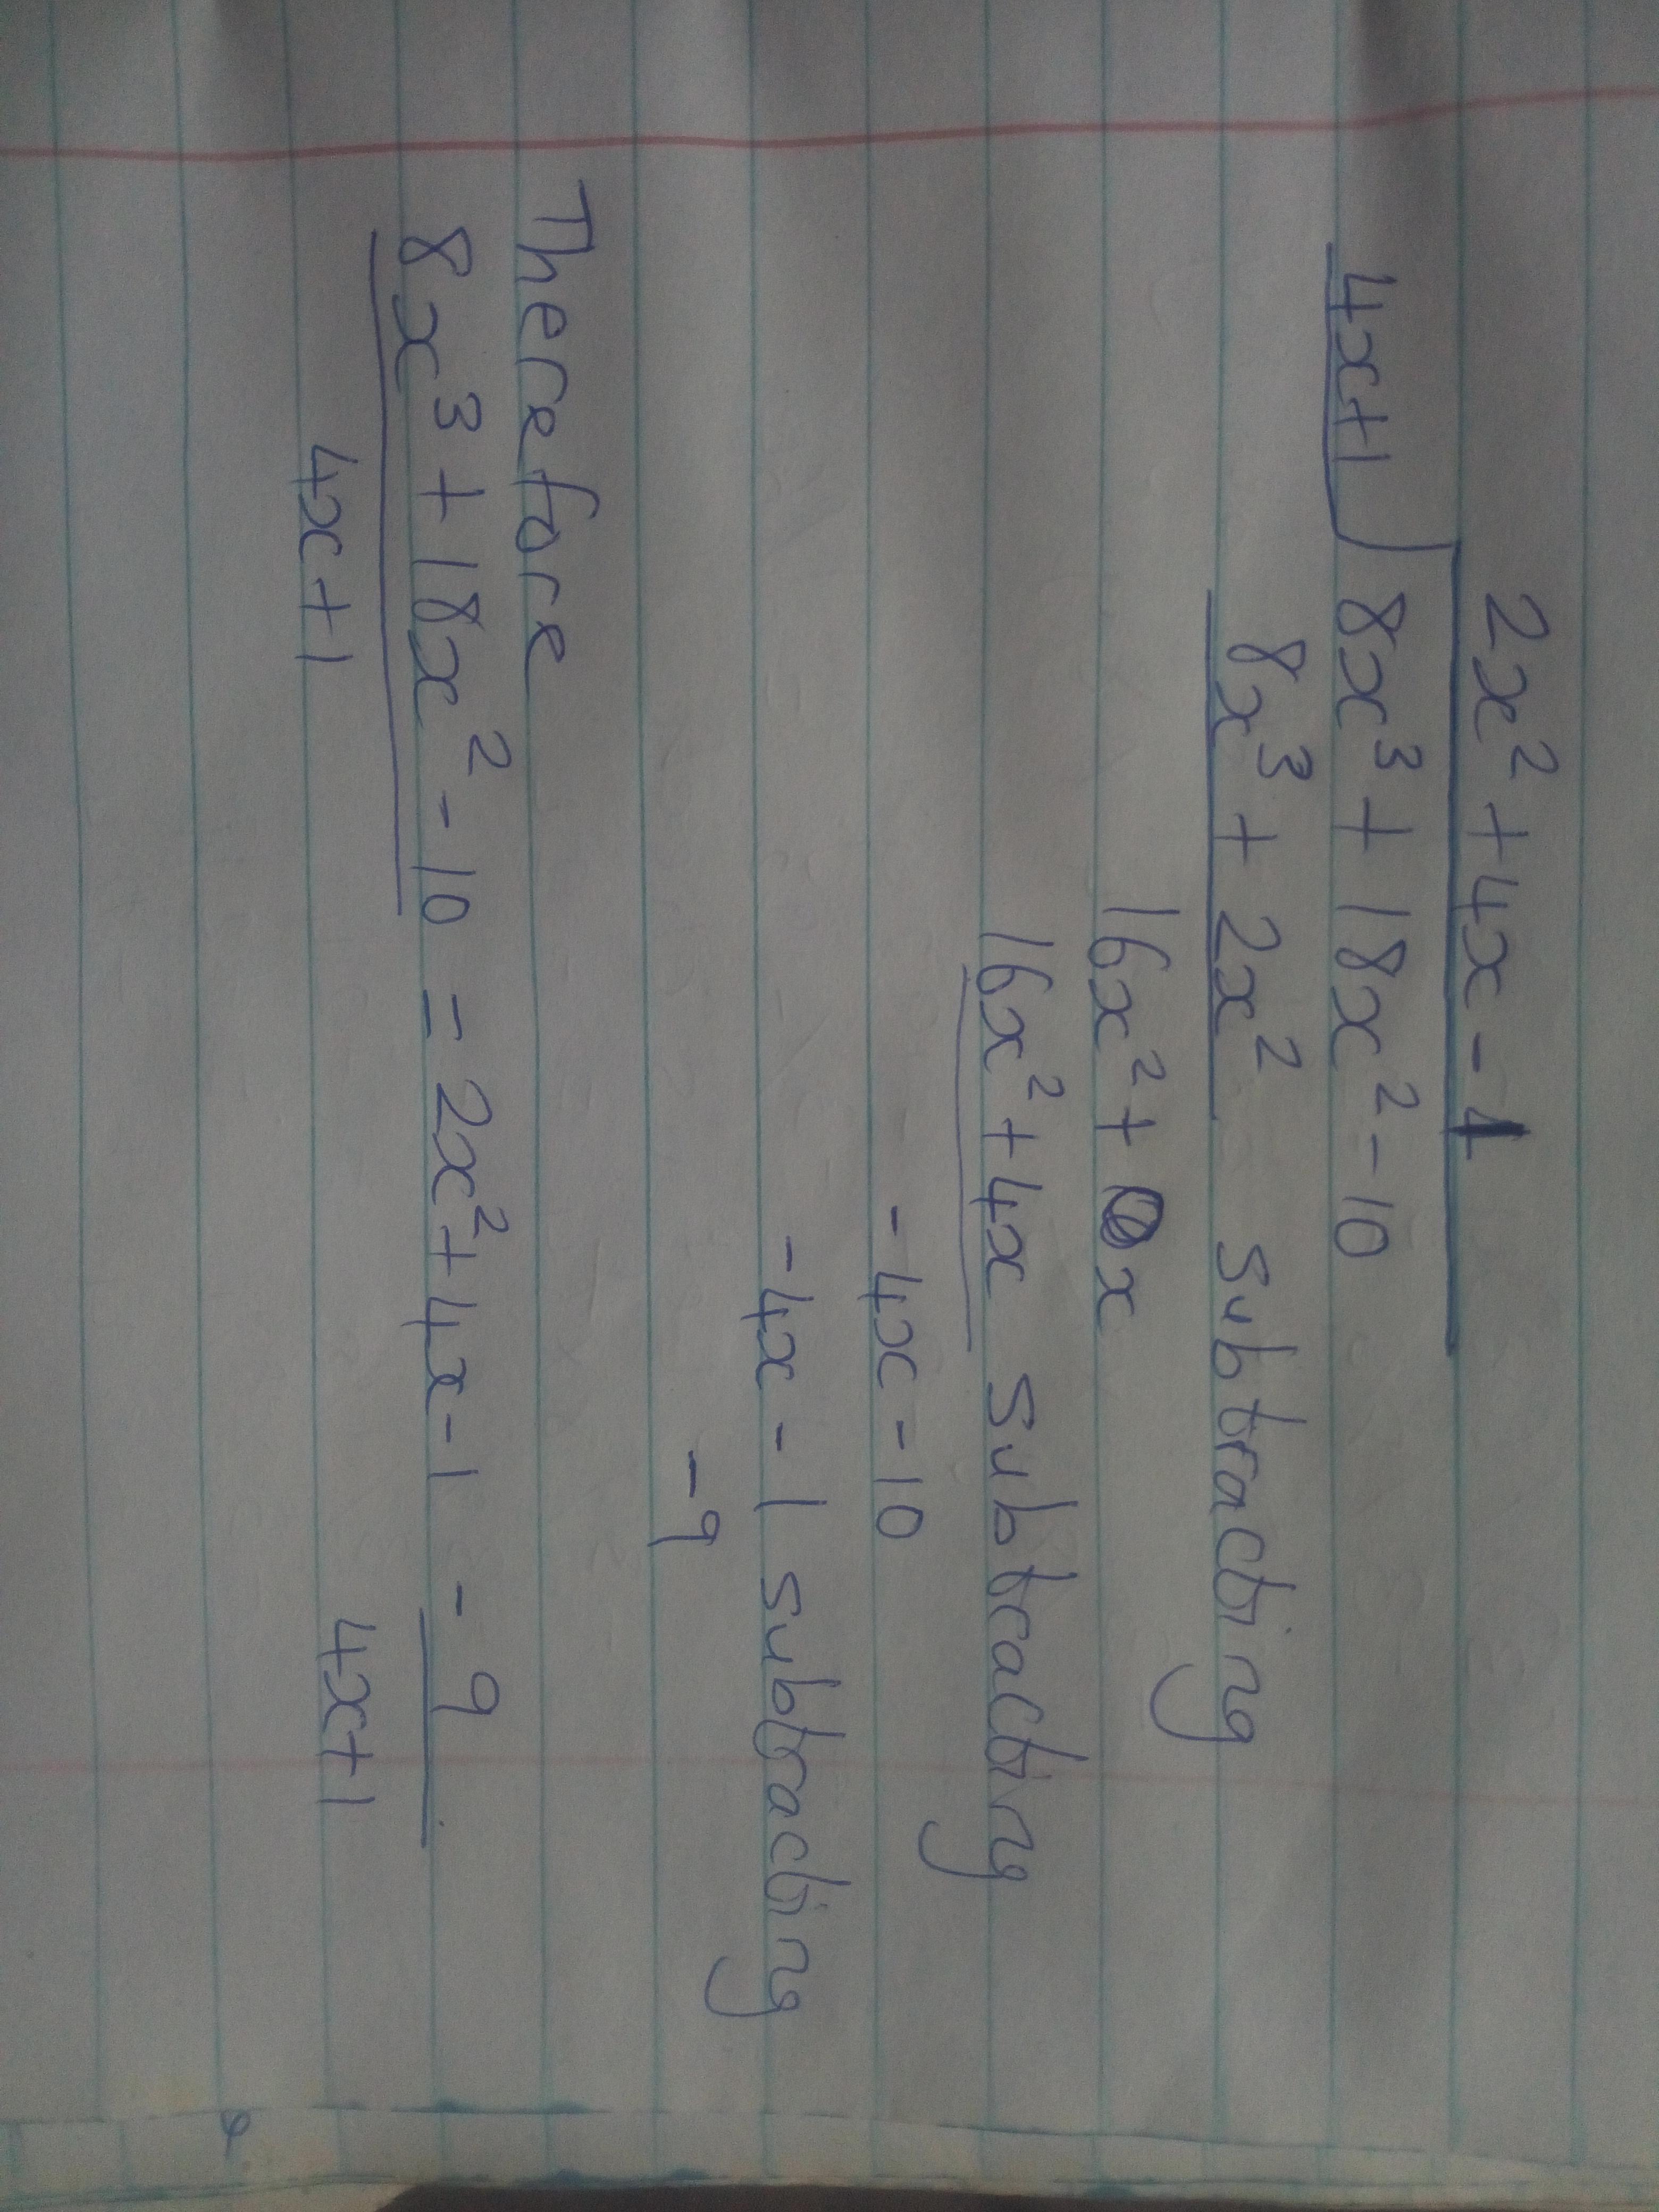 2x² + 4x - 1
4x+1 8x³ + 18x² - 10
8x³ + 2x² subtracting
16x² + 0x
16x² + 4x subtracting
-4x - 10
-4x - 1 subtracting
-9
Therefore
8x³ + 18x² - 10 = 2x² + 4x - 1 - 9
4x + 1 4x+1